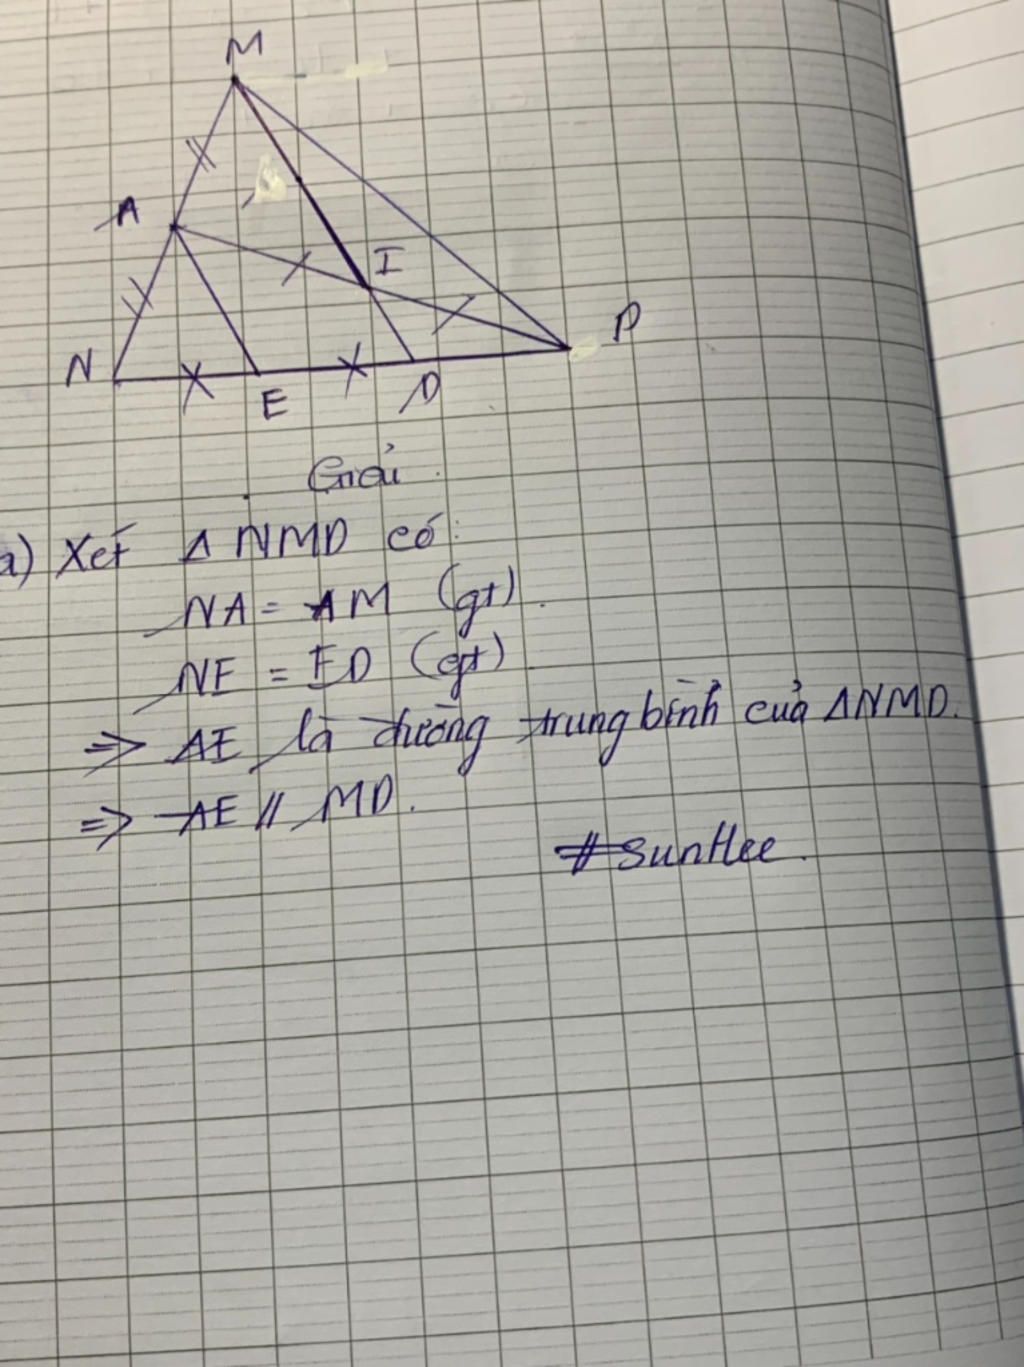 M
A
I
P
N
E
D
Giải
a) Xét Δ NMD có:
NA = AM (gt).
NE = ED (gt)
=> AE là đường trung bình của ΔNMD.
=> AE // MD.
#sunHee.